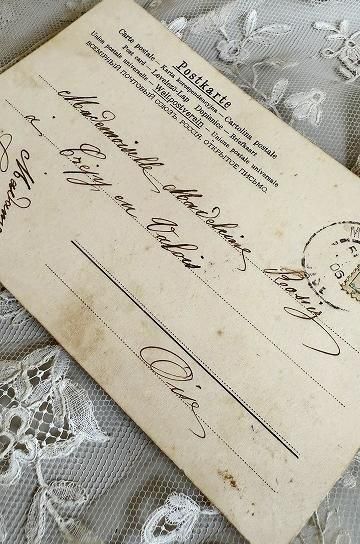 Postkarte
Carte postale — Karta korespondencyjna — Cartolina postale
Post card — Levelezö-Lap — Dopisnice — Briefkaart
Union postale universelle — Weltpostverein — Unione postale universale
ВСЕМІРНЫЙ ПОЧТОВЫЙ СОЮЗЪ. РОССІЯ. ОТКРЫТОЕ ПИСЬМО.
Mademoiselle Madeleine
à Crépy en Valois
Oise
06